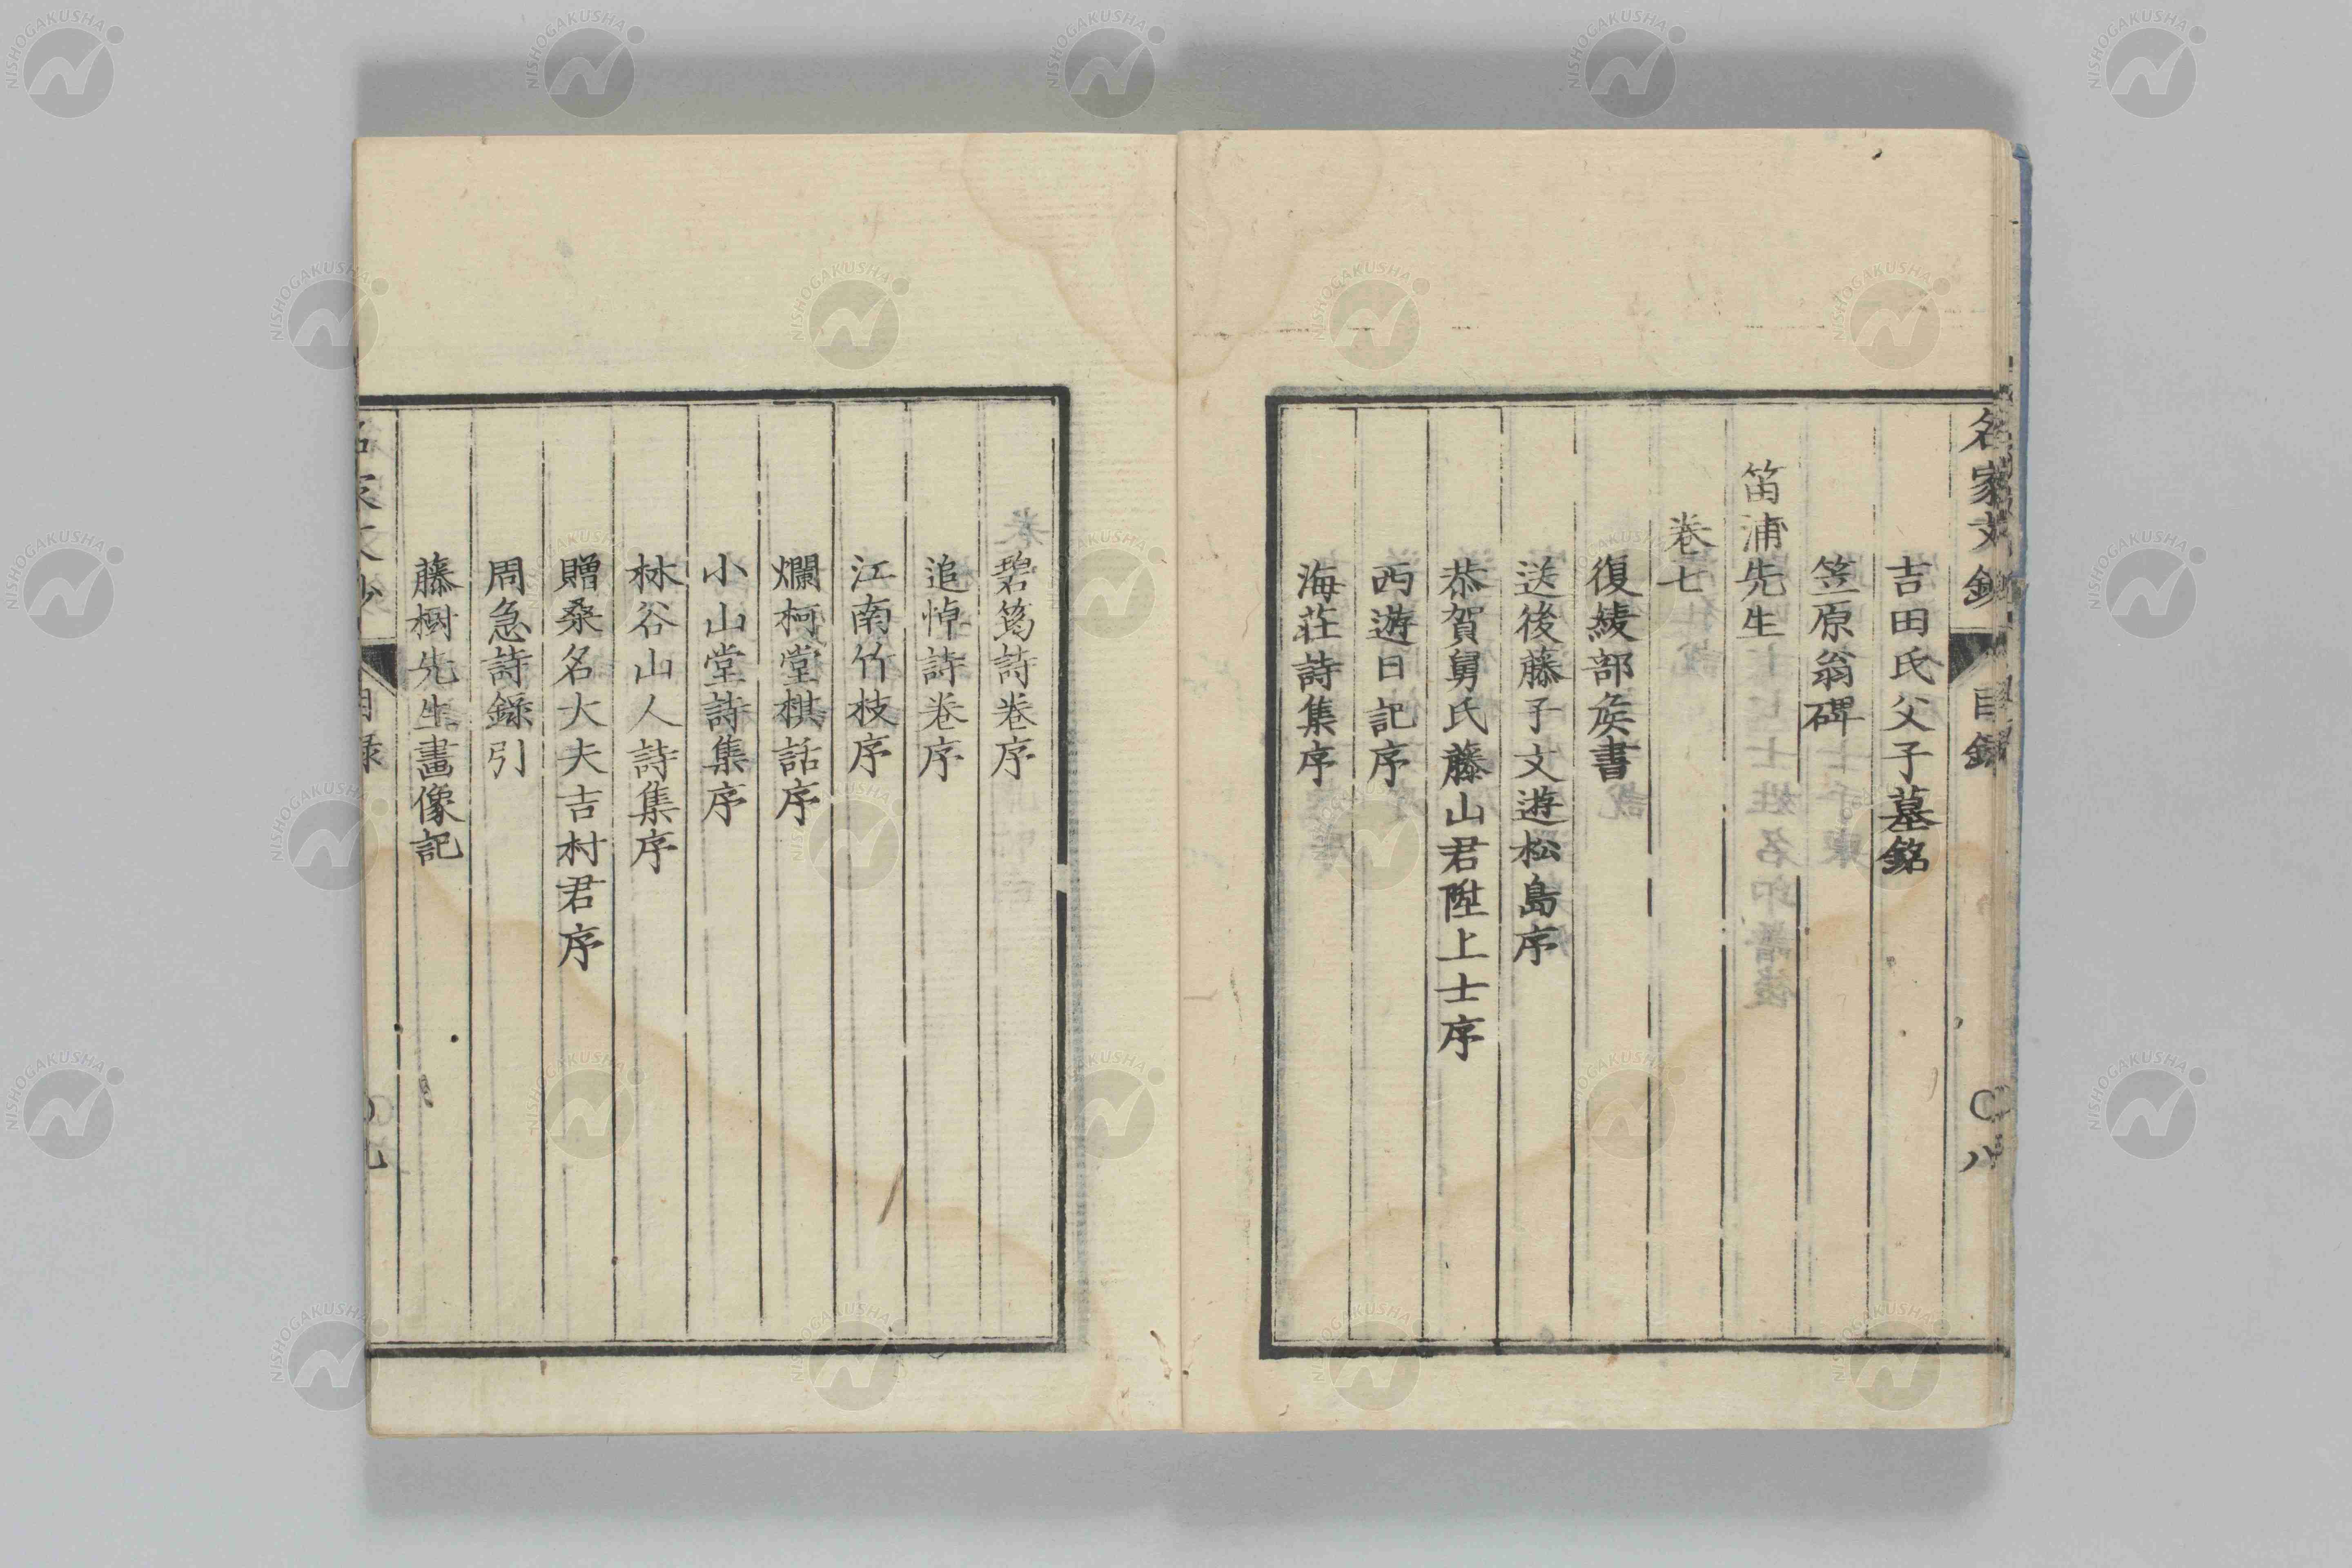 名家文鈔
目錄
〇八
吉田氏父子墓銘
笠原翁碑
笛浦先生
卷七
復綾部矦書
送後藤子文遊松島序
恭賀舅氏藤山君陞上士序
西遊日記序
海莊詩集序
碧筠詩卷序
追悼詩卷序
江南竹枝序
爛柯堂棋話序
小山堂詩集序
林谷山人詩集序
贈桑名大夫吉村君序
周急詩錄引
藤樹先生畫像記
NISHOGAKUSHA